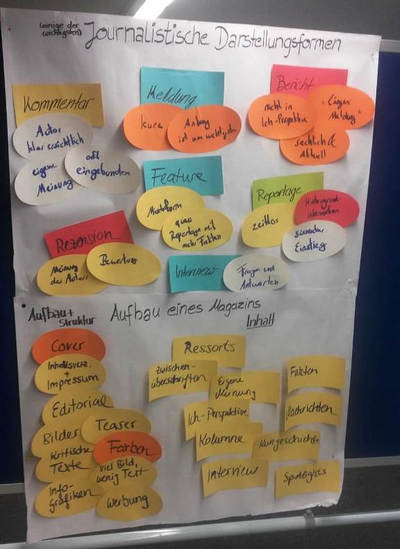 (einige der wichtigsten) Journalistische Darstellungsformen
Kommentar
Autor
klar ersichtlich
eigene
Meinung
oft
eingebunden
Meldung
kurz
Anfang
ist am wichtigsten
Bericht
nicht in
Ich-Perspektive
"längere
Meldung"
sachlich &
Aktuell
Feature
Mischform
quasi
Reportage mit
mehr Fakten
Reportage
zeitlos
Hintergrund
szenischer
Einstieg
Rezension
Meinung
des Autors
Bewertung
Interview
Fragen und
Antworten
Aufbau +
Struktur
Aufbau eines Magazins
Inhalt
Cover
Inhaltsverz.
+
Impressum
Editorial
Bilder
Teaser
Kritische
Texte
Farben
viel Bild,
wenig Text
Info-
grafiken
Werbung
Ressorts
Zwischen-
überschriften
Eigene
Meinung
Ich-Perspektive
Kolumne
Interview
Fakten
Nachrichten
Kurzgeschichte